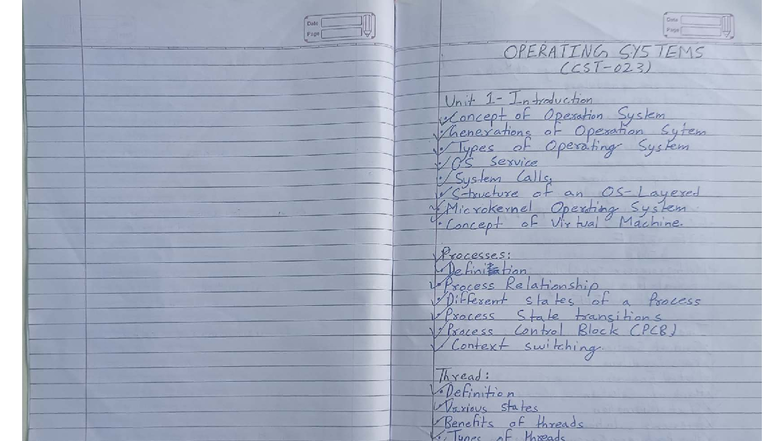 Date
Page
Date
Page
OPERATING SYSTEMS
(CST-023)
Unit 1- Introduction
Concept of Operation System
Generations of Operation Sytem
Types of Operating System
OS Service
System Calls
Structure of an OS-Layered
Microkernel Operating System
Concept of Virtual Machine.
Processes:
Definition
Process Relationship
Different states of a Process
Process State transitions
Process Control Block (PCB)
Context switching
Thread:
Definition
Various states
Benefits of threads
Types of threads